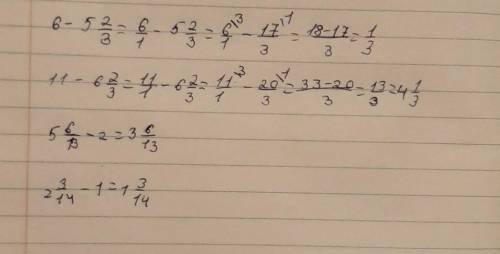 6 - 5 2/3 = 6/1 - 5 2/3 = 6/1 \3 - 17/3 \1 = 18-17/3 = 1/3
11 - 6 2/3 = 11/1 - 6 2/3 = 11/1 \3 - 20/3 \1 = 33-20/3 = 13/3 = 4 1/3
5 6/13 - 2 = 3 6/13
2 3/14 - 1 = 1 3/14